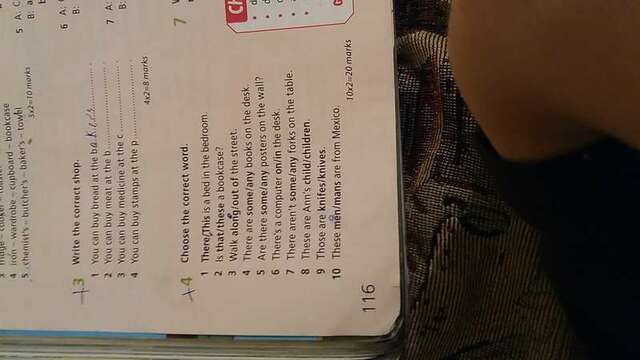 4 iron – wardrobe – cupboard – bookcase
5 chemist's – butcher's – baker's – towel
3x2=10 marks
3 Write the correct shop.
1 You can buy bread at the bakers
2 You can buy meat at the b
3 You can buy medicine at the c
4 You can buy stamps at the p
4x2=8 marks
4 Choose the correct word.
1 There/This is a bed in the bedroom.
2 Is that/these a bookcase?
3 Walk along/out of the street.
4 There are some/any books on the desk.
5 Are there some/any posters on the wall?
6 There's a computer on/in the desk.
7 There aren't some/any forks on the table.
8 These are Ann's child/children.
9 Those are knifes/knives.
10 These men/mans are from Mexico.
10x2=20 marks
116
5 A:
B:
6 A:
B:
7 A:
B:
7